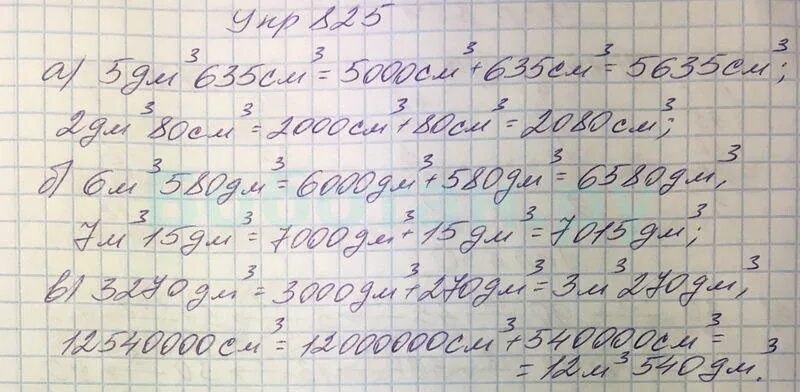 Упр 825
а) 5дм³ 635см³ = 5000см³ + 635см³ = 5635см³;
2дм³ 80см³ = 2000см³ + 80см³ = 2080см³;
б) 6м³ 580дм³ = 6000дм³ + 580дм³ = 6580дм³,
7м³ 15дм³ = 7000дм³ + 15дм³ = 7015дм³;
в) 3270дм³ = 3000дм³ + 270дм³ = 3м³ 270дм³,
12540000см³ = 12000000см³ + 540000см³ =
= 12м³ 540дм³.